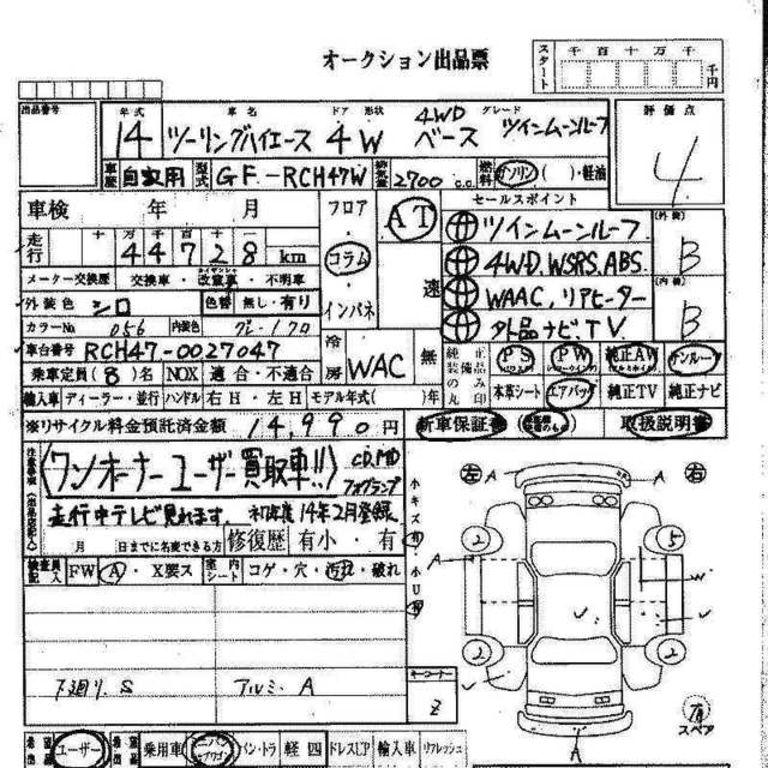 オークション出品票
スタート 千 百 十 万 千 千円
出品番号 年式 車名 ドア 形状 グレード 評価点
14 ツーリングハイエース 4W 4WD ベース ツインムーンルーフ 4
車歴 自家用 型式 GF-RCH47W 排気量 2700 c.c. 燃料 ガソリン ( )・軽油
車検 年 月 フロア AT セールスポイント (外装)
ツインムーンルーフ B
走行 十 万 千 百 十 一
44728 km コラム 4WD.WSRS.ABS.
メーター交換歴 交換車・改ざん車・不明車 速 WAAC, リアヒーター (内装)
外装色 シロ 色替 無し・有り インパネ 外品ナビTV B
カラーNo. 056 内装色 グレー 170
車台番号 RCH47-0027047 冷房 WAC 無 純正装備のみ丸印 PS PW 純正AW サンルーフ
乗車定員(8)名 NOX 適合・不適合 本革シート エアバッグ 純正TV 純正ナビ
輸入車 ディーラー・並行 ハンドル 右H・左H モデル年式( )年
※リサイクル料金預託済金額 14,990円 新車保証書 取扱説明書
注意事項(出品店記入) ワンオーナーユーザー買取車!! CD.MD
フォグランプ
走行中テレビ見れます。 初年度14年2月登録
月 日までに名変できる方 修復歴 有小・有
小キズ有・小U有
検査員記入 FW A・X要ス 室内シート コゲ・穴・汚れ・破れ
左 A A 右
2 5
A W
2 2
下廻り S アルミ A
キーコーナー
Z
有
スペア
A
ユーザー 乗用車 ミニバン・ワゴン バン・トラ 軽四 ドレスピア 輸入車 リフレッシュ